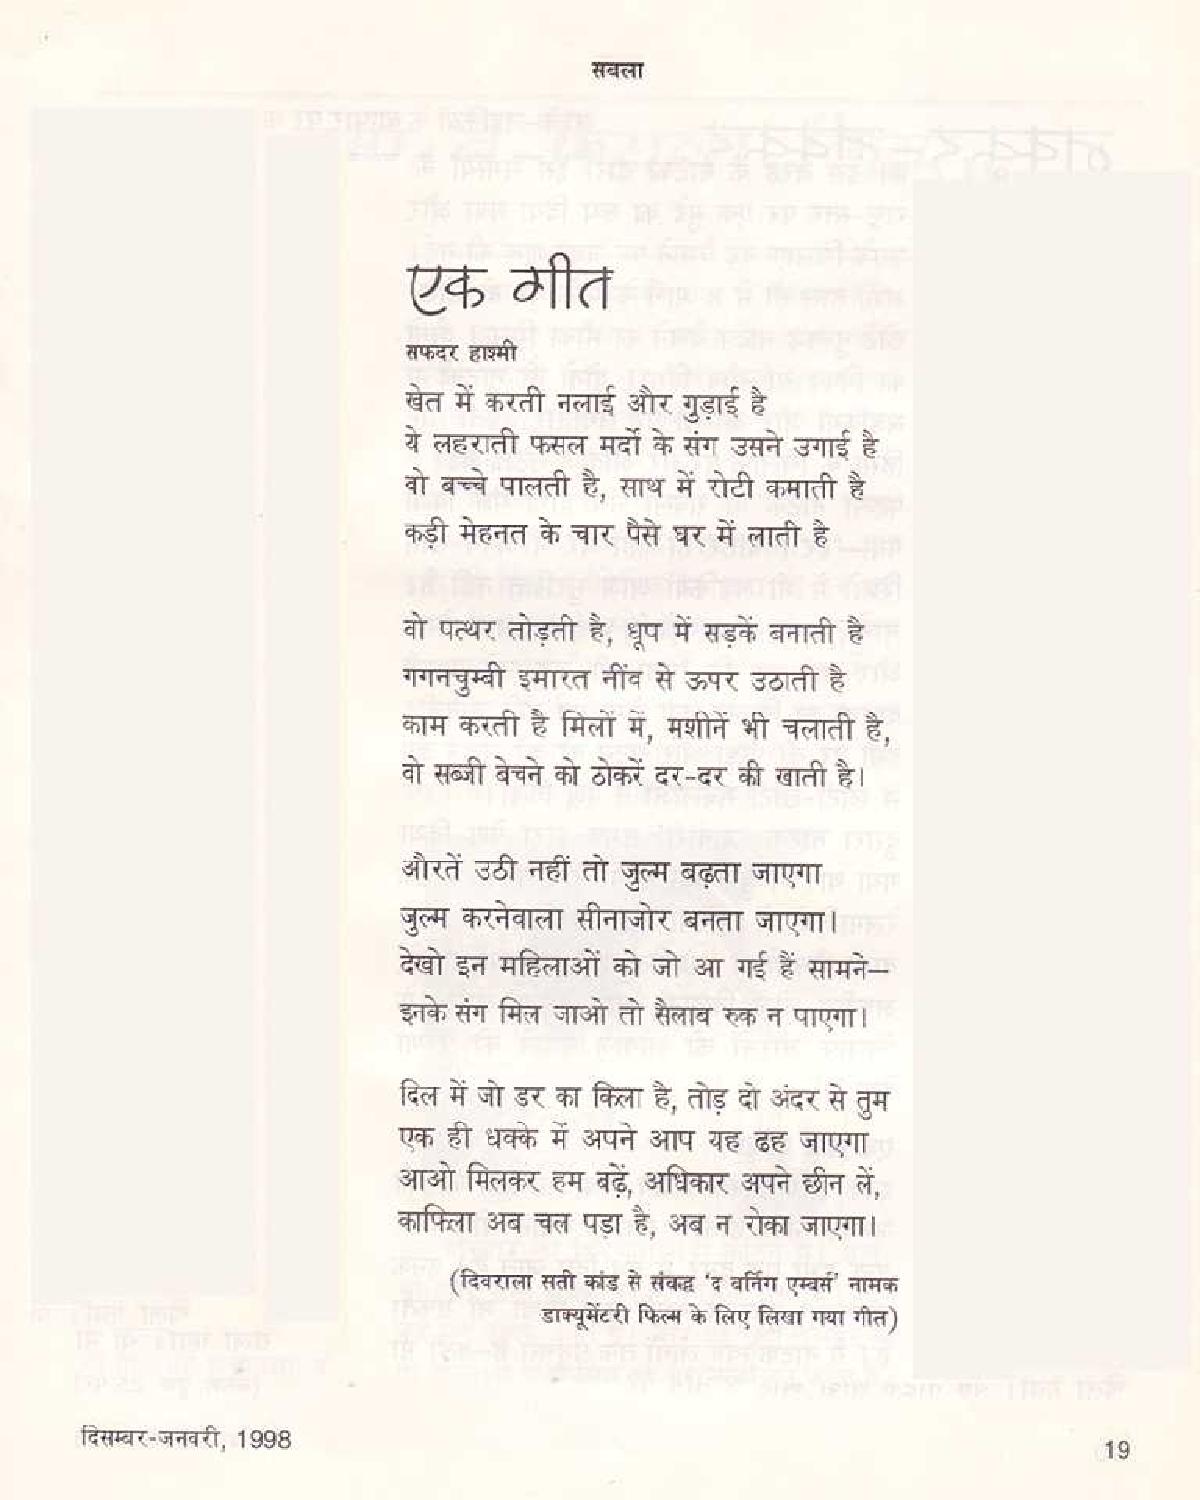 सबला
एक गीत
सफदर हाश्मी
खेत में करती नलाई और गुड़ाई है
ये लहराती फसल मर्दो के संग उसने उगाई है
वो बच्चे पालती है, साथ में रोटी कमाती है
कड़ी मेहनत के चार पैसे घर में लाती है
वो पत्थर तोड़ती है, धूप में सड़कें बनाती है
गगनचुम्बी इमारत नींव से ऊपर उठाती है
काम करती है मिलों में, मशीनें भी चलाती है,
वो सब्जी बेचने को ठोकरें दर-दर की खाती है।
औरतें उठी नहीं तो जुल्म बढ़ता जाएगा
जुल्म करनेवाला सीनाजोर बनता जाएगा।
देखो इन महिलाओं को जो आ गई हैं सामने—
इनके संग मिल जाओ तो सैलाब रुक न पाएगा।
दिल में जो डर का किला है, तोड़ दो अंदर से तुम
एक ही धक्के में अपने आप यह ढह जाएगा
आओ मिलकर हम बढ़ें, अधिकार अपने छीन लें,
काफिला अब चल पड़ा है, अब न रोका जाएगा।
(दिवराला सती कांड से संबद्ध ‘द बर्निंग एम्बर्स’ नामक
डाक्यूमेंटरी फिल्म के लिए लिखा गया गीत)
दिसम्बर-जनवरी, 1998
19